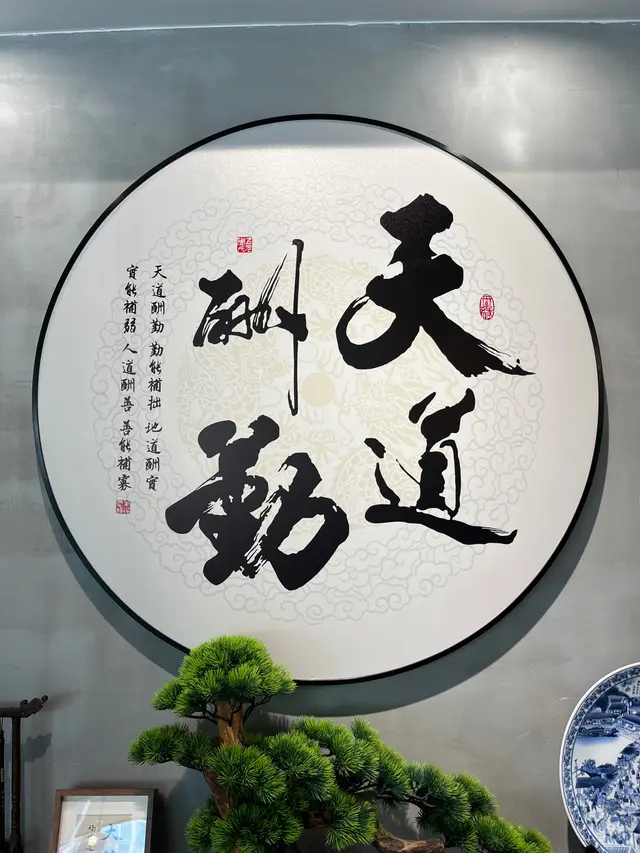 天道
酬勤
天道酬勤 勤能補拙 地道酬實
實能補弱 人道酬善 善能補寡